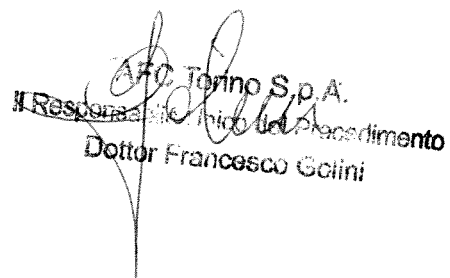 AFC Torino S.p.A.
Il Responsabile Unico del Procedimento
Dottor Francesco Golini